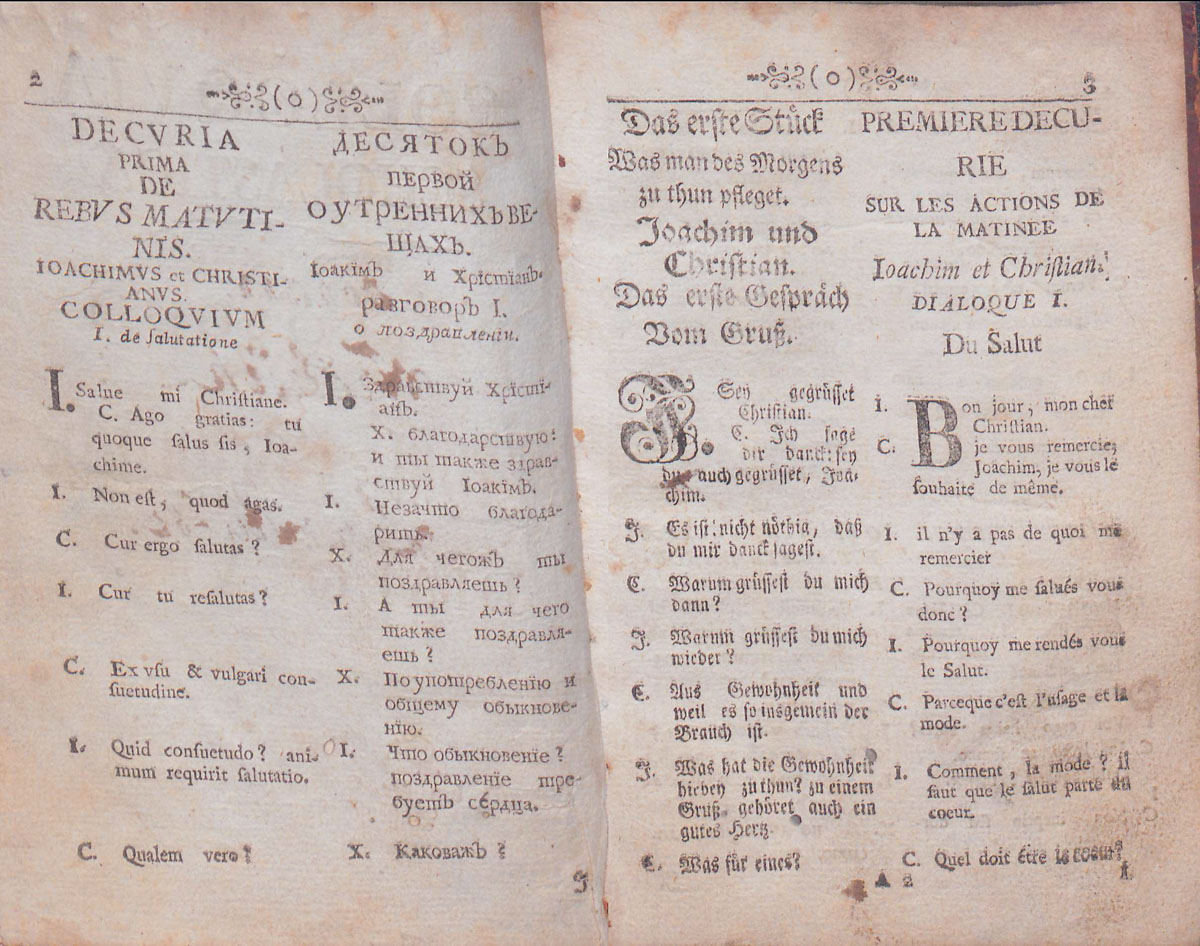 2
(o)
DECVRIA
PRIMA
DE
REBVS MATVTI-
NIS.
IOACHIMVS et CHRISTI-
ANVS.
COLLOQVIVM
I. de ſalutatione
I. Salue mi Chriſtiane.
C. Ago gratias: tu
quoque ſalus ſis, Ioa-
chime.
I. Non eſt, quod agas.
C. Cur ergo ſalutas?
I. Cur tu reſalutas?
C. Ex vſu & vulgari con-
ſuetudine.
I. Quid conſuetudo? ani-
mum requirit ſalutatio.
C. Qualem vero?
ДЕСЯТОКЪ
ПЕРВОЙ
О УТРЕННИХЪ ВЕ-
ЩАХЪ.
Іоакімъ и Хрістіанъ.
разговоръ I.
о поздравленіи.
I. Здравствуй Хрісті-
анъ.
X. благодарствую:
и ты также здрав-
ствуй Іоакімъ.
I. Незачто благода-
рить.
X. Для чегожъ ты
поздравляешь?
I. А ты для чего
также поздравля-
ешь?
X. По употребленїю и
общему обыкнове-
нїю.
I. Что обыкновенїе?
поздравленїе тре-
буетъ сердца.
X. Каковажъ?
J
(o)
3
Das erſte Stück
Was man des Morgens
zu thun pfleget.
Joachim und
Chriſtian.
Das erſte Geſpräch
Vom Gruß.
J. Sey gegrüſſet
Chriſtian.
C. Ich ſage
dir danck: ſey
du auch gegrüſſet, Joa-
chim.
J. Es iſt nicht nöthig, daß
du mir danck ſageſt.
C. Warum grüſſeſt du mich
dann?
J. Warum grüſſeſt du mich
wieder?
C. Aus Gewohnheit und
weil es ſo insgemein der
Brauch iſt.
J. Was hat die Gewohnheit
hiebey zu thun? zu einem
Gruß gehöret auch ein
gutes Hertz.
C. Was für eines?
PREMIERE DECU-
RIE
SUR LES ACTIONS DE
LA MATINEE
Ioachim et Chriſtian.
DIALOQUE I.
Du Salut
I. Bon jour, mon cher
Chriſtian.
C. je vous remercie,
Joachim, je vous le
ſouhaite de même.
I. il n'y a pas de quoi me
remercier
C. Pourquoy me ſalués vous
donc?
I. Pourquoy me rendés vous
le Salut.
C. Parceque c'eſt l'uſage et la
mode.
I. Comment, la mode? il
faut que le ſalut parte du
coeur.
C. Quel doit être le coeur?
A 2
I.